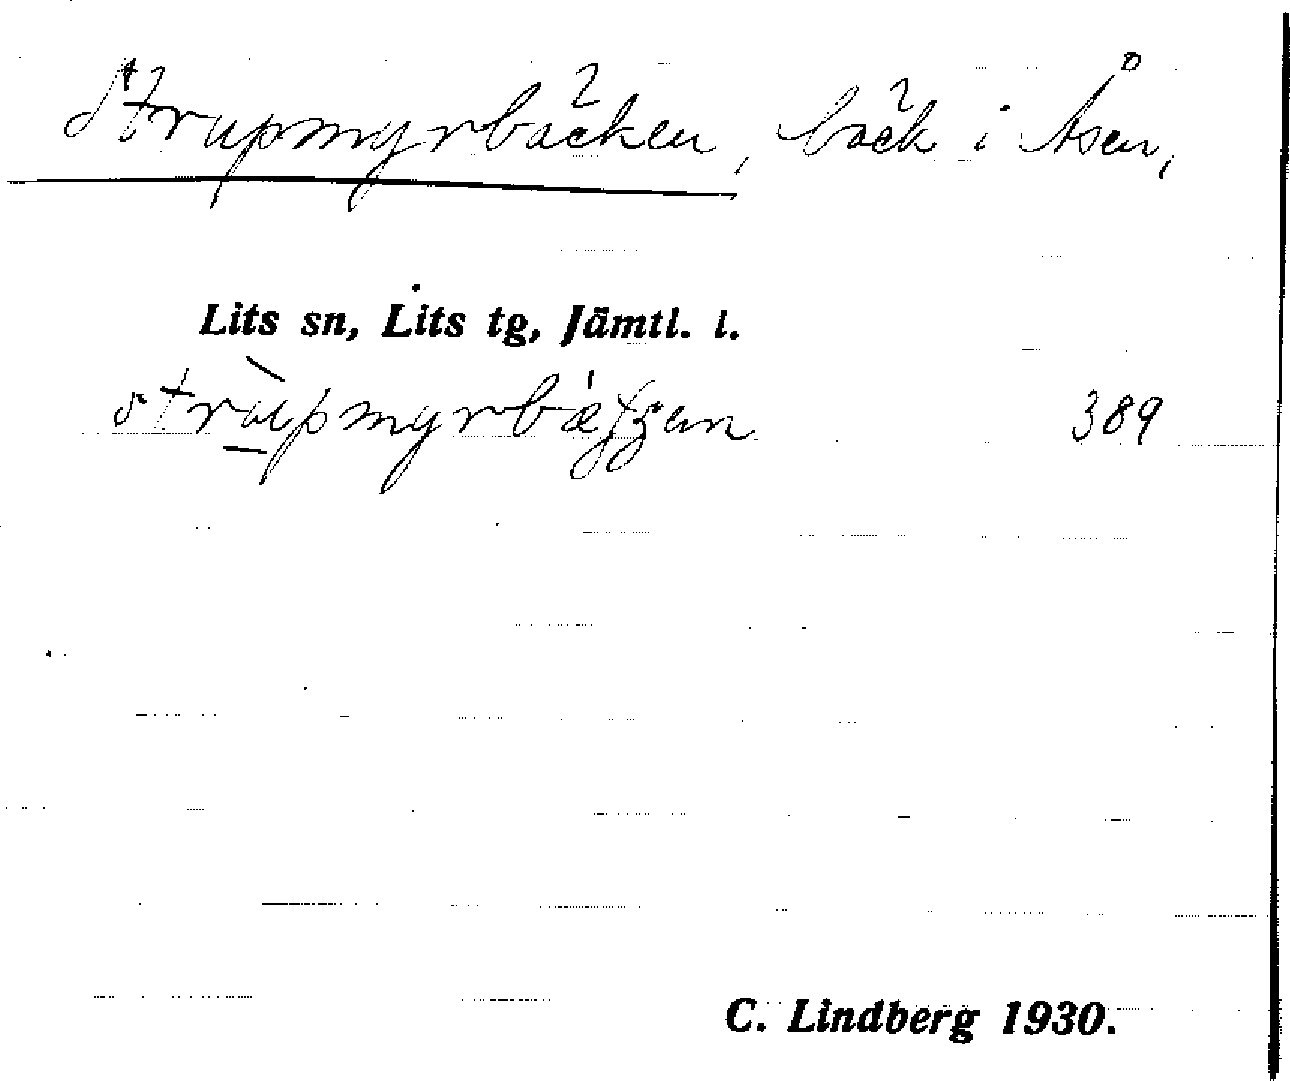 Strupmyrbäcken, bäck i Åsen,
Lits sn, Lits tg, Jämtl. l.
389
C. Lindberg 1930.